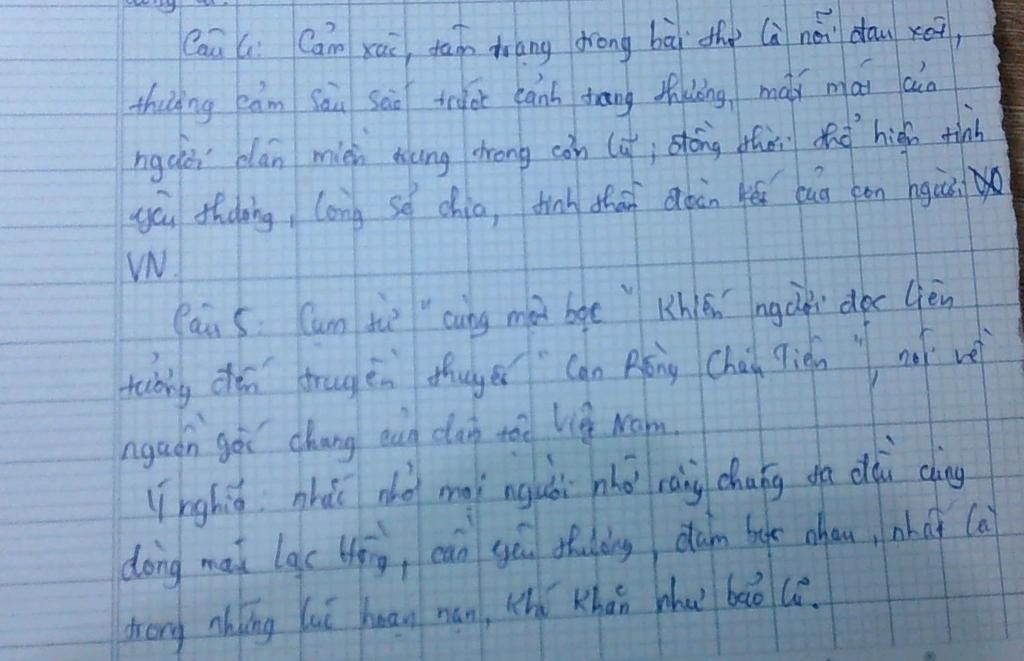 Câu 4: Cảm xúc, tâm trạng trong bài thơ là nỗi đau xót,
thương cảm sâu sắc trước cảnh tang thương, mất mát của
người dân miền trung trong cơn lũ, đồng thời thể hiện tình
yêu thương, lòng sẻ chia, tinh thần đoàn kết của con người
VN.
Câu 5: Cụm từ "cùng một bọc" khiến người đọc liên
tưởng đến truyền thuyết "Con Rồng Cháu Tiên", nói về
nguồn gốc chung của dân tộc Việt Nam.
Ý nghĩa: nhắc nhở mọi người nhớ rằng chúng ta đều cùng
dòng máu Lạc Hồng, cần yêu thương, đùm bọc nhau, nhất là
trong những lúc hoạn nạn, khó khăn như bão lũ.